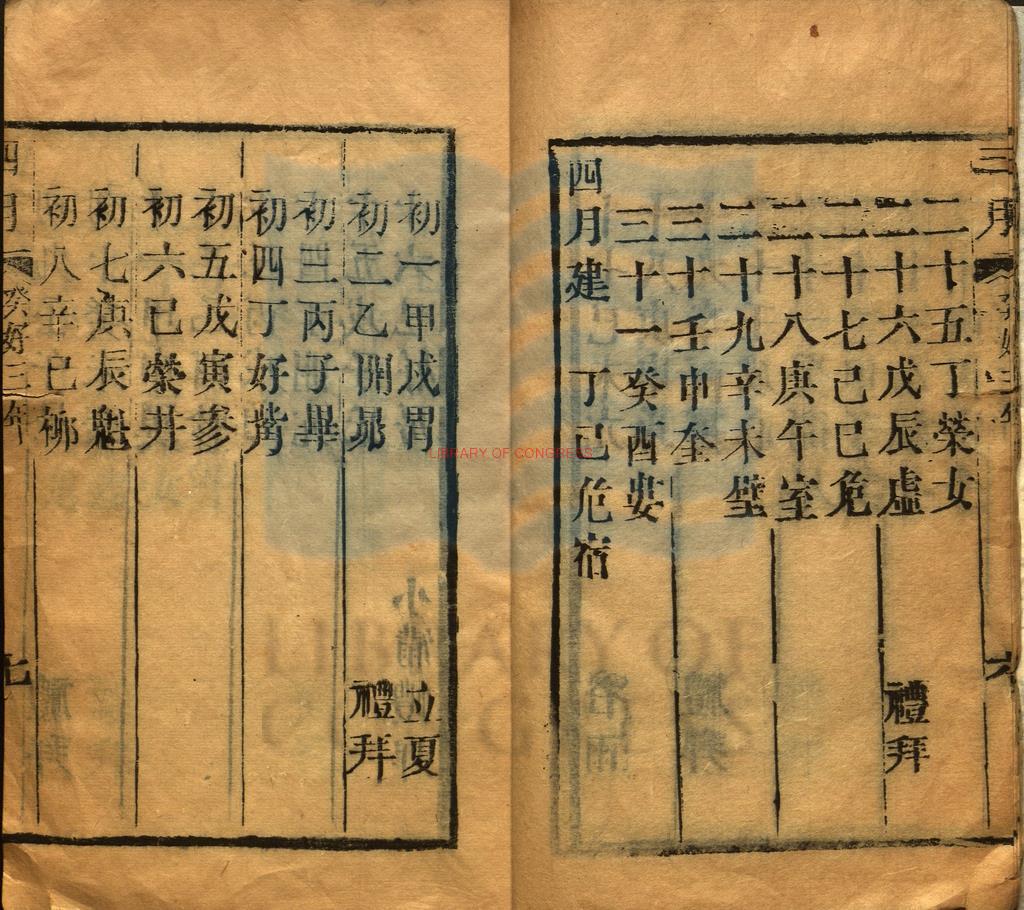 三月 癸好三年 六
二十五丁榮女
二十六戊辰虛 禮拜
二十七己巳危
二十八庚午室
二十九辛未壁
三十壬申奎
三十一癸酉婁
四月建 丁巳危宿
初一甲戌胃 立夏
初二乙開昴 禮拜
初三丙子畢
初四丁好觜
初五戊寅參
初六己榮井
初七庚辰魁
初八辛巳柳
四月 癸好三年 七
LIBRARY OF CONGRESS